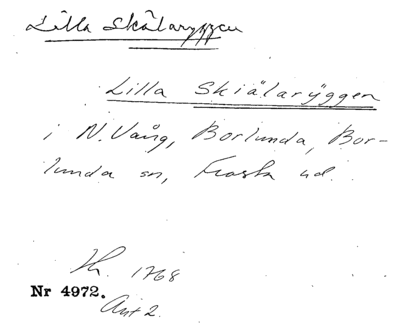 Lilla Skälaryggen
Lilla Skiälarÿggen
i N. Vång, Borlunda, Bor-
lunda sn, Frosta hd.
Lh. 1768
Nr 4972.
Akt 2.